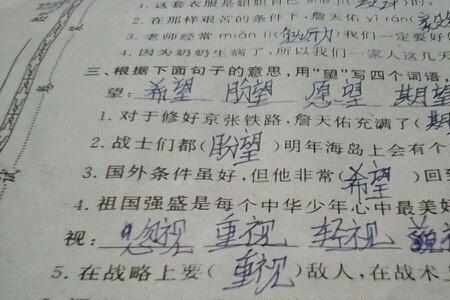 2. 在那样艰苦的条件下,詹天佑yì rán(
3. 老师经常miǎn lì(勉励)我们一定要好
4. 因为奶奶生病了,所以我们一家人这几天
三、根据下面句子的意思,用“望”写四个词语,
望: 希望 盼望 愿望 期望
1. 对于修好京张铁路,詹天佑充满了(期
2. 战士们都(盼望)明年海岛上会有个
3. 国外条件虽好,但他非常(希望)回到
4. 祖国强盛是每个中华少年心中最美好
视: 忽视 重视 轻视 藐视
5. 在战略上要(重视)敌人,在战术上